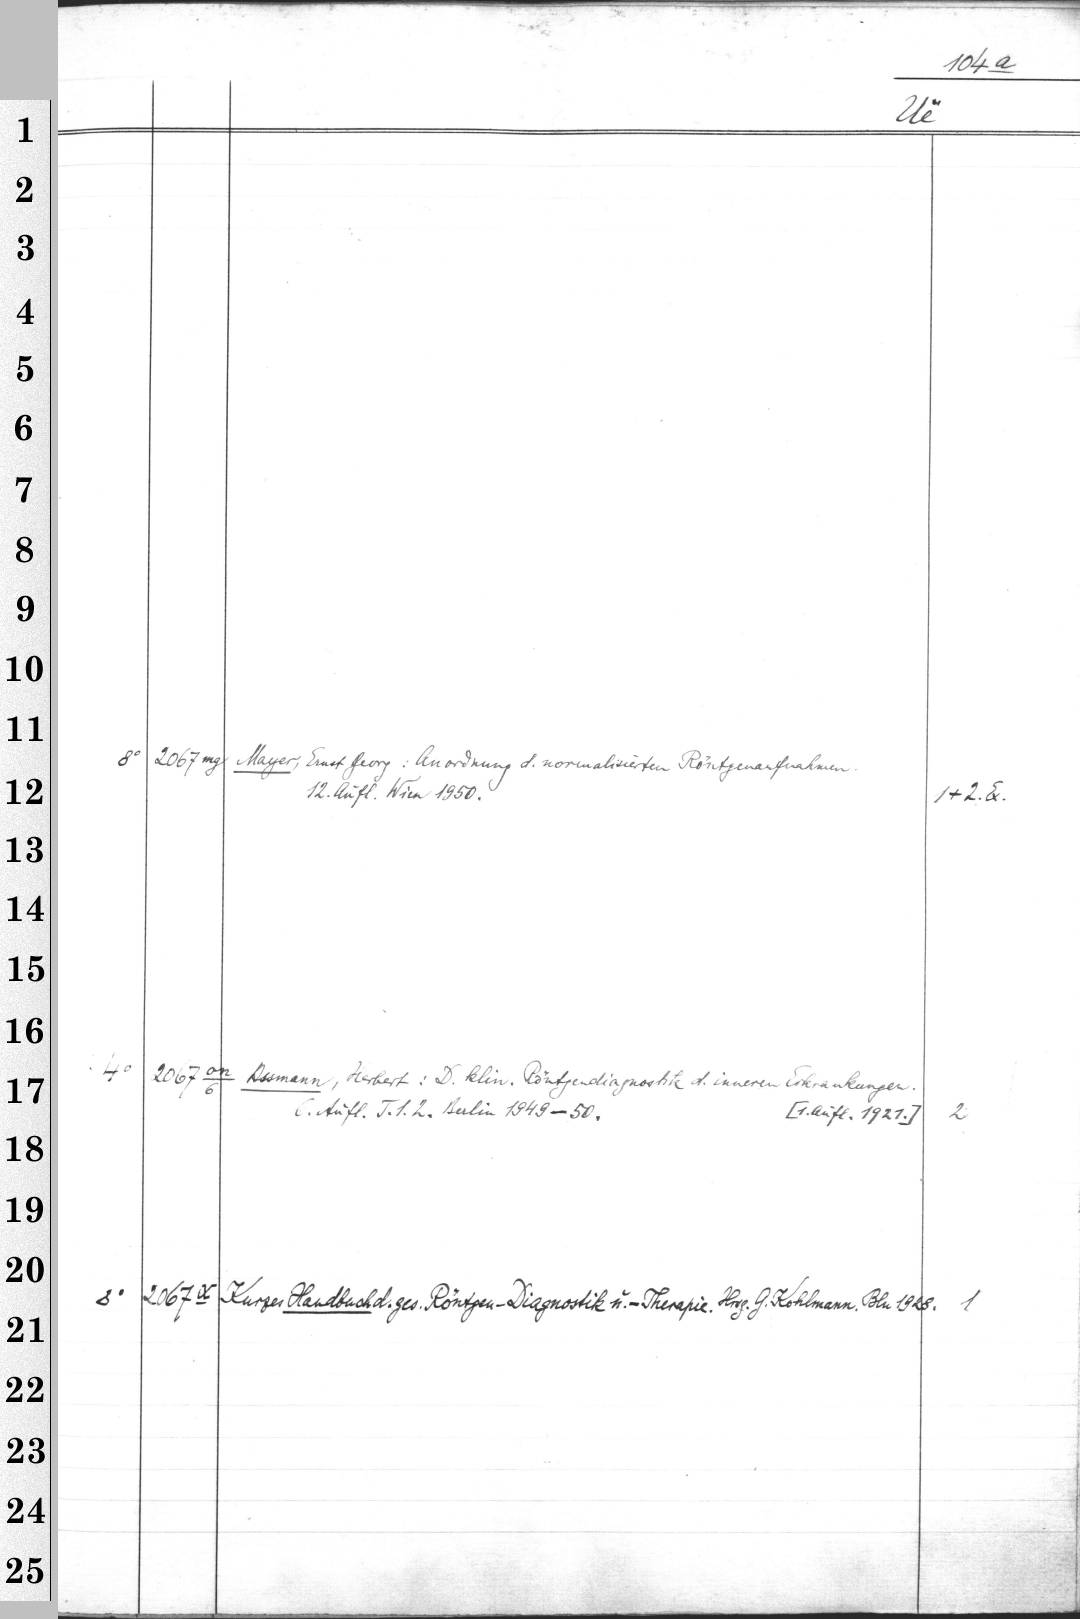 104a
Uë
1
2
3
4
5
6
7
8
9
10
11
8° 2067 mg Mayer, Ernst Georg : Anordnung d. normalisierten Röntgenaufnahmen.
12
12. Aufl. Wien 1950. 1+2. Ex.
13
14
15
16
4° 2067 on/6 Assmann, Herbert : D. klin. Röntgendiagnostik d. inneren Erkrankungen.
17
6. Aufl. T. 1. 2. Berlin 1949–50. [1. Aufl. 1921.] 2
18
19
20
8° 2067 Kurzes Handbuch d. ges. Röntgen-Diagnostik u. -Therapie. Hrsg. G. Kohlmann. Bln 1928. 1
21
22
23
24
25